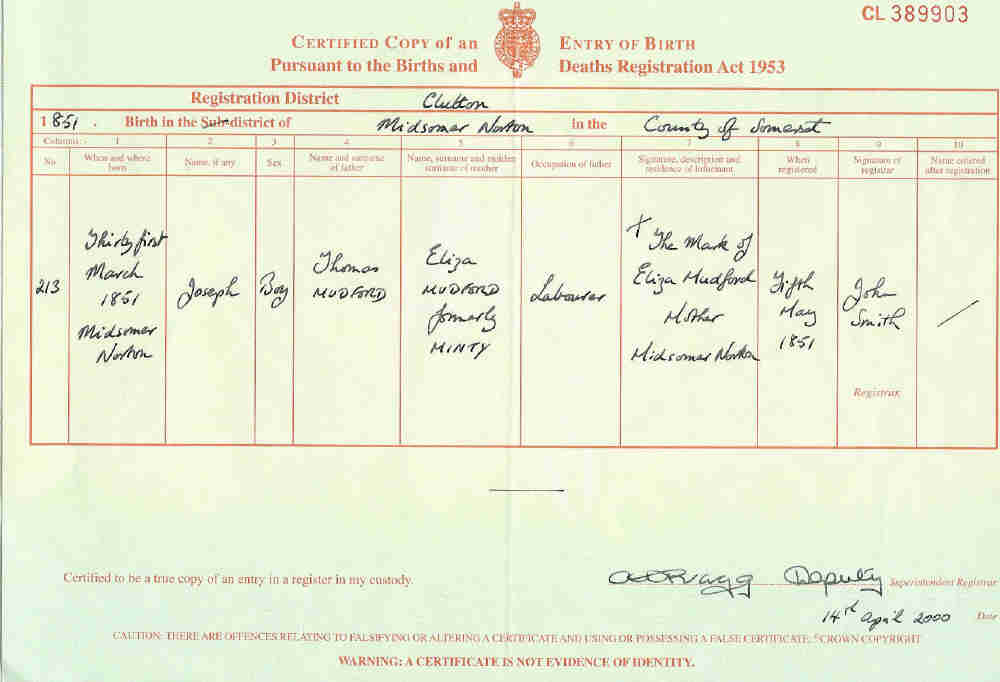 CL 389903
CERTIFIED COPY of an ENTRY OF BIRTH
Pursuant to the Births and Deaths Registration Act 1953
Registration District Clutton
1851. Birth in the Sub-district of Midsomer Norton in the County of Somerset
Columns:- 1 2 3 4 5 6 7 8 9 10
No When and where born Name, if any Sex Name and surname of father Name, surname and maiden surname of mother Occupation of father Signature, description and residence of informant When registered Signature of registrar Name entered after registration
213
Thirty first
March
1851
Midsomer
Norton
Joseph
Boy
Thomas
MUDFORD
Eliza
MUDFORD
formerly
MINTY
Labourer
X The Mark of
Eliza Mudford
Mother
Midsomer Norton
Fifth
May
1851
John
Smith
Registrar
/
Certified to be a true copy of an entry in a register in my custody.
Deputy Superintendent Registrar
14th April 2000 Date
CAUTION: THERE ARE OFFENCES RELATING TO FALSIFYING OR ALTERING A CERTIFICATE AND USING OR POSSESSING A FALSE CERTIFICATE. ©CROWN COPYRIGHT
WARNING: A CERTIFICATE IS NOT EVIDENCE OF IDENTITY.